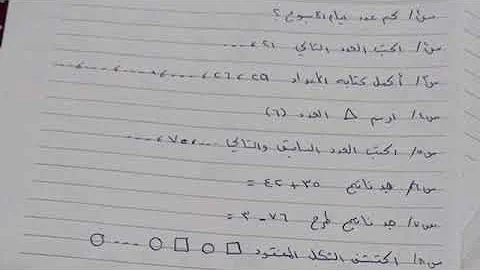 س١/ كم عدد ايام الاسبوع ؟
س٢/ اكتب العدد التالي ٢١،....
س٣/ أكمل كتابة الأعداد ٢٩،٢٦،....،....،....،....
س٤/ ارسم △ العدد (٦)
س٥/ اكتب العدد السابق والتالي ....،٧٥،....
س٦/ جد ناتج ٣٥+٤٢ =
س٧/ جد ناتج طرح ٧٦-٣ =
س٨/ اكتشف الشكل المفقود □ ○ □ ○ .... ○